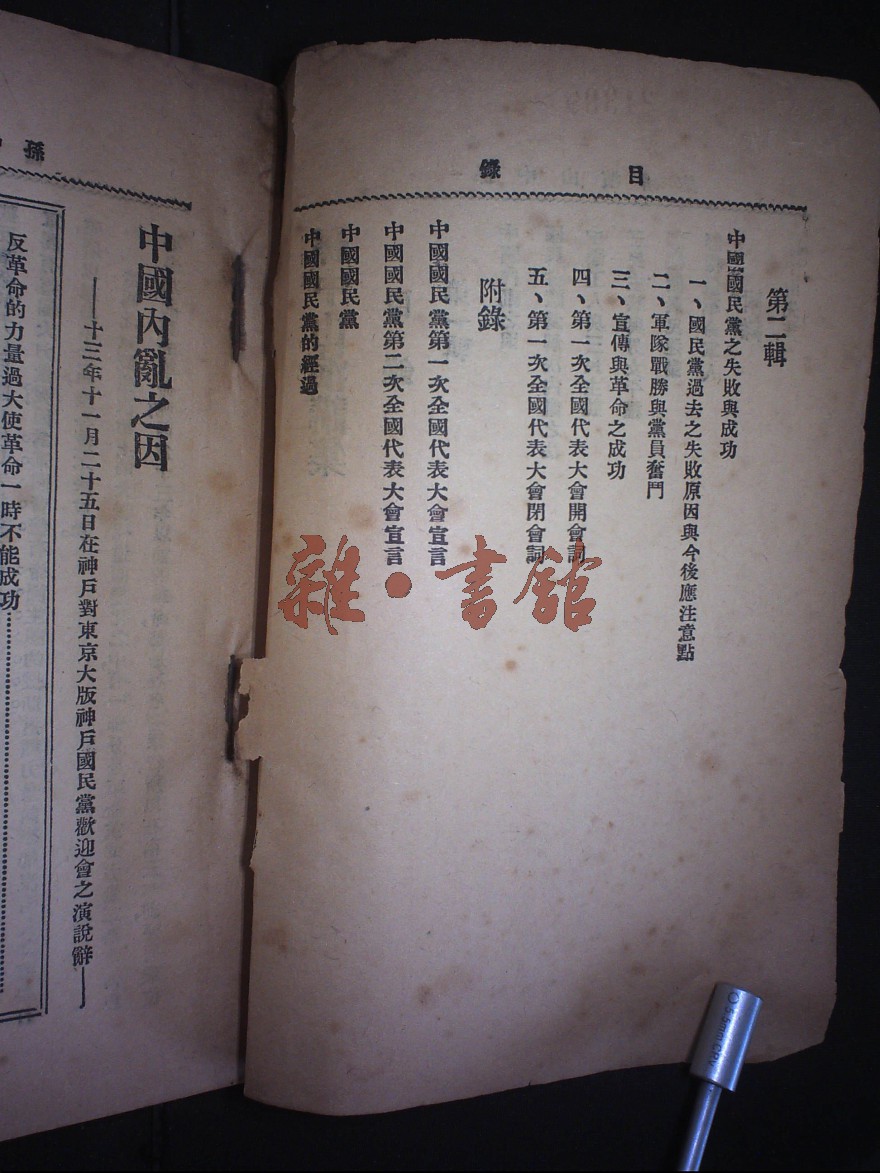 目錄
第二輯
中國國民黨之失敗與成功
一、國民黨過去之失敗原因與今後應注意點
二、軍隊戰勝與黨員奮鬥
三、宣傳與革命之成功
四、第一次全國代表大會開會詞
五、第一次全國代表大會閉會詞
附錄
中國國民黨第一次全國代表大會宣言
中國國民黨第二次全國代表大會宣言
中國國民黨
中國國民黨的經過
雜·書館
孫
中國內亂之因
——十三年十一月二十五日在神戶對東京大版神戶國民黨歡迎會之演說辭——
反革命的力量過大使革命一時不能成功